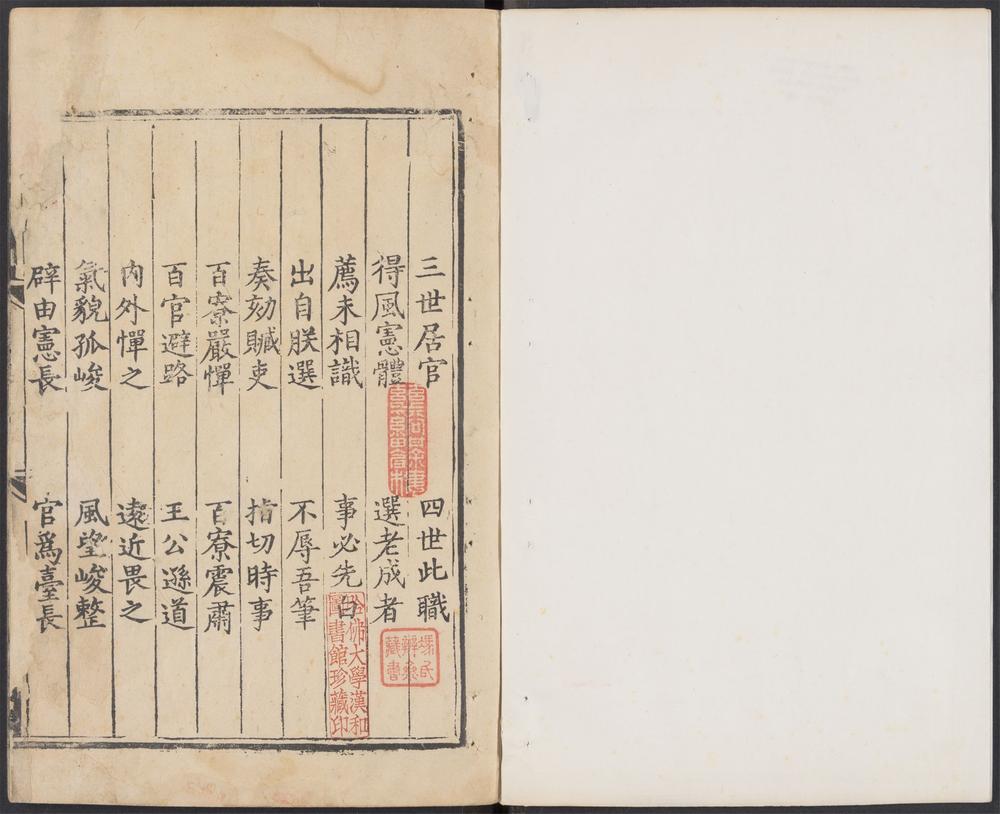 三世居官 四世此職
得風憲體 選老成者
薦未相識 事必先白
出自朕選 不辱吾筆
奏劾贓吏 指切時事
百寮嚴憚 百寮震肅
百官避路 王公遜道
內外憚之 遠近畏之
氣貌孤峻 風望峻整
辟由憲長 官爲臺長
哈佛大學漢和
圖書館珍藏印